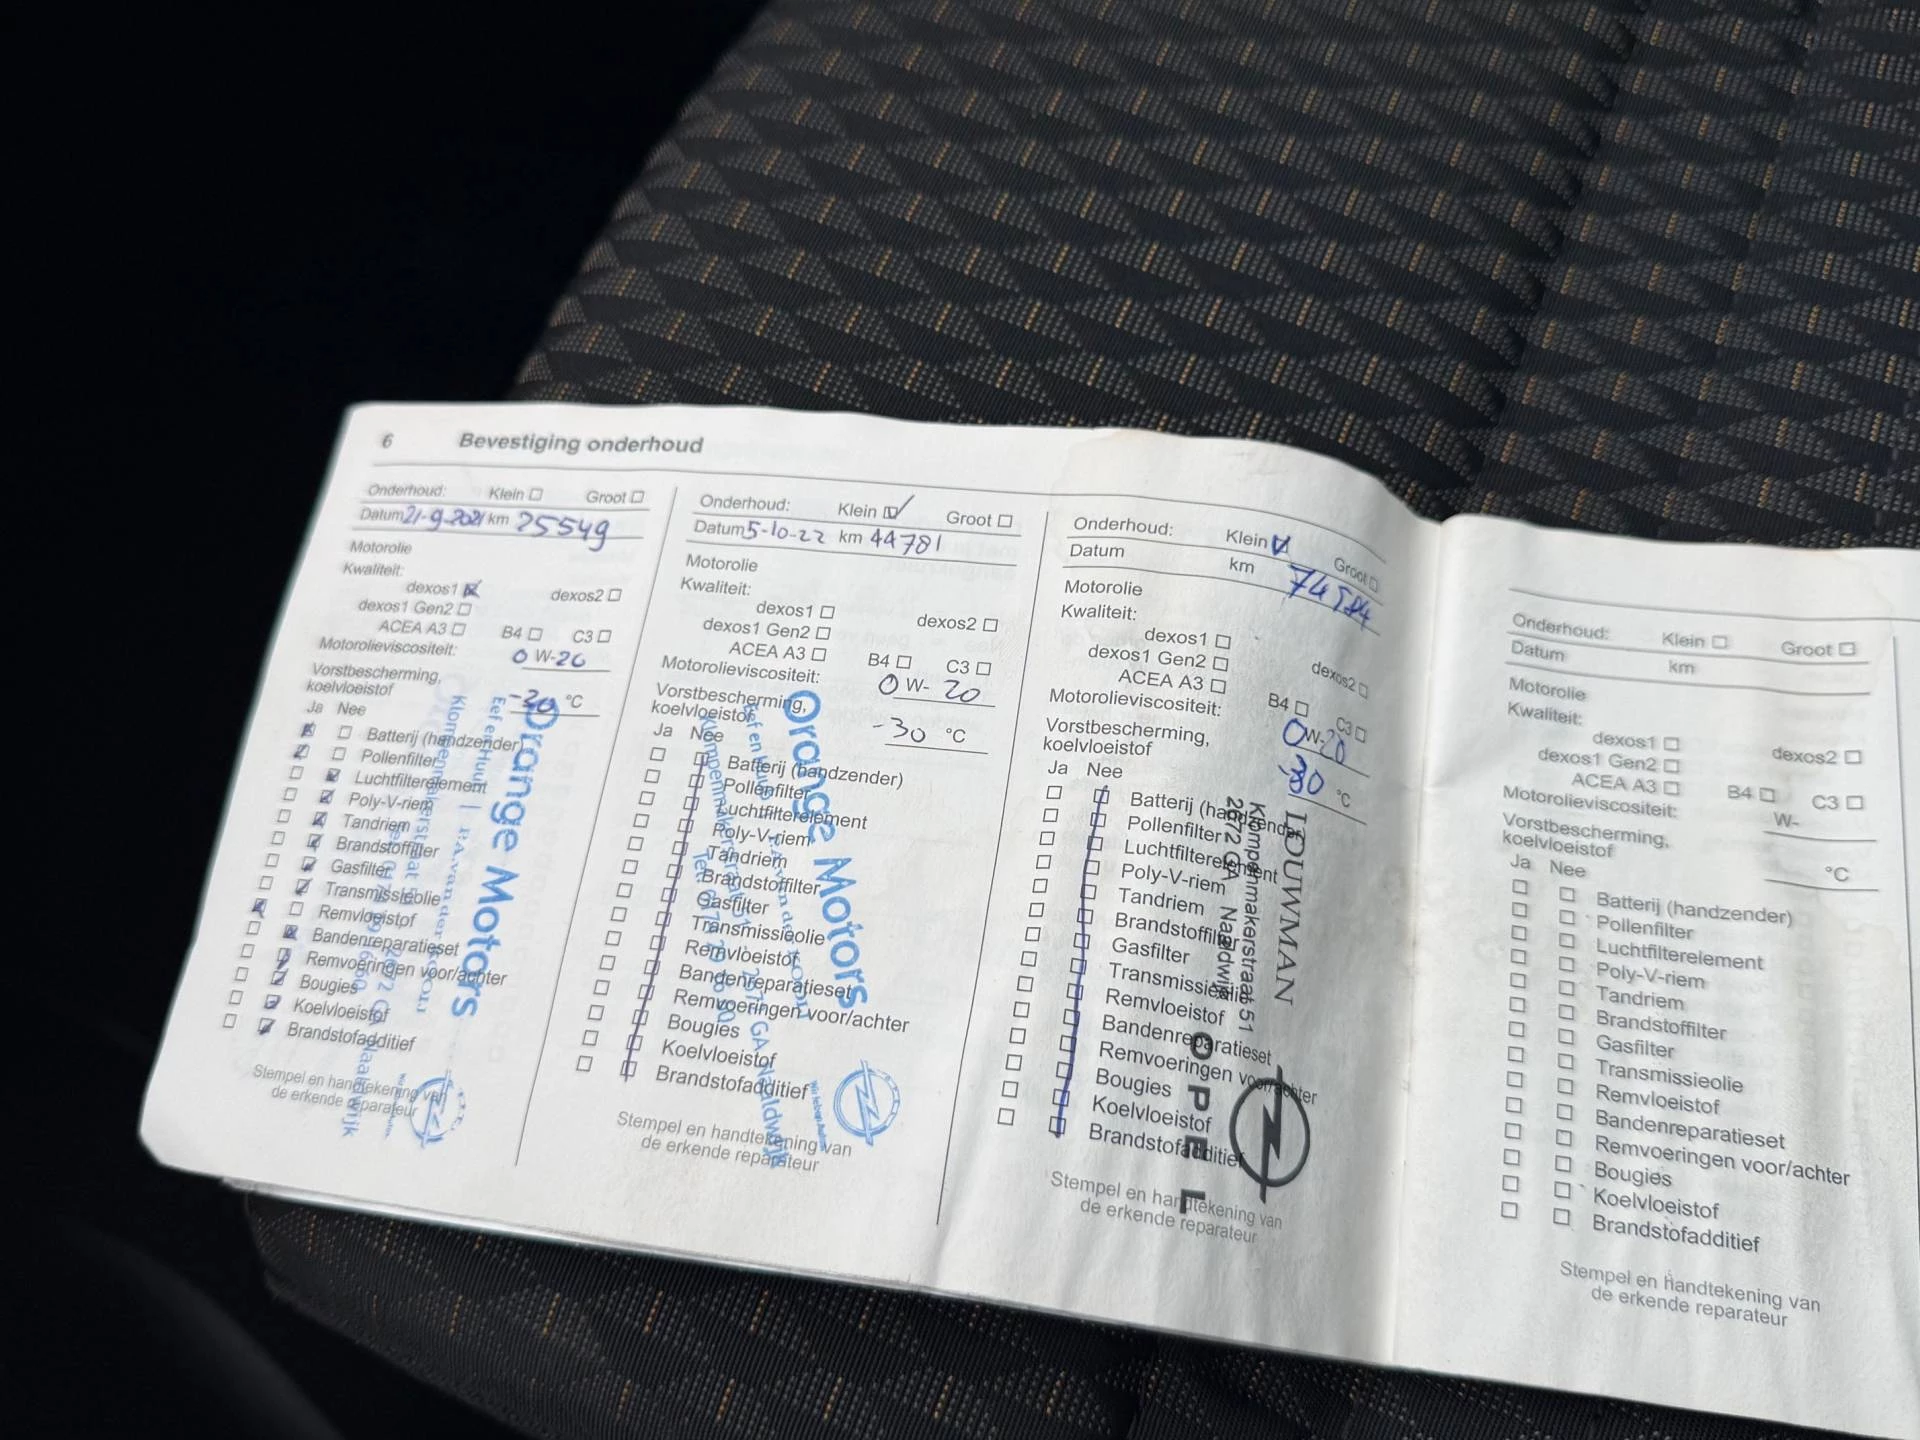 6 Bevestiging onderhoud
Onderhoud: Klein Groot
Datum 21-9-2021 km 25549
Motorolie
Kwaliteit:
dexos1 dexos2
dexos1 Gen2
ACEA A3 B4 C3
Motorolieviscositeit: 0 W-20
Vorstbescherming,
koelvloeistof -30 °C
Ja Nee
Batterij (handzender)
Pollenfilter
Luchtfilterelement
Poly-V-riem
Tandriem
Brandstoffilter
Gasfilter
Transmissieolie
Remvloeistof
Bandenreparatieset
Remvoeringen voor/achter
Bougies
Koelvloeistof
Brandstofadditief
Stempel en handtekening van
de erkende reparateur
Orange Motors
Onderhoud: Klein Groot
Datum 5-10-22 km 44781
Motorolie
Kwaliteit:
dexos1 dexos2
dexos1 Gen2
ACEA A3 B4 C3
Motorolieviscositeit: 0 W- 20
Vorstbescherming,
koelvloeistof -30 °C
Ja Nee
Batterij (handzender)
Pollenfilter
Luchtfilterelement
Poly-V-riem
Tandriem
Brandstoffilter
Gasfilter
Transmissieolie
Remvloeistof
Bandenreparatieset
Remvoeringen voor/achter
Bougies
Koelvloeistof
Brandstofadditief
Stempel en handtekening van
de erkende reparateur
Orange Motors
Onderhoud: Klein Groot
Datum km
Motorolie
Kwaliteit:
dexos1 dexos2
dexos1 Gen2
ACEA A3 B4 C3
Motorolieviscositeit: 0 W-20
Vorstbescherming,
koelvloeistof -30 °C
Ja Nee
Batterij (handzender)
Pollenfilter
Luchtfilterelement
Poly-V-riem
Tandriem
Brandstoffilter
Gasfilter
Transmissieolie
Remvloeistof
Bandenreparatieset
Remvoeringen voor/achter
Bougies
Koelvloeistof
Brandstofadditief
Stempel en handtekening van
de erkende reparateur
LOUWMAN
Klompenmakerstraat 51
2672 GA Naaldwijk
OPEL
Onderhoud: Klein Groot
Datum km
Motorolie
Kwaliteit:
dexos1 dexos2
dexos1 Gen2
ACEA A3 B4 C3
Motorolieviscositeit: W-
Vorstbescherming,
koelvloeistof °C
Ja Nee
Batterij (handzender)
Pollenfilter
Luchtfilterelement
Poly-V-riem
Tandriem
Brandstoffilter
Gasfilter
Transmissieolie
Remvloeistof
Bandenreparatieset
Remvoeringen voor/achter
Bougies
Koelvloeistof
Brandstofadditief
Stempel en handtekening van
de erkende reparateur